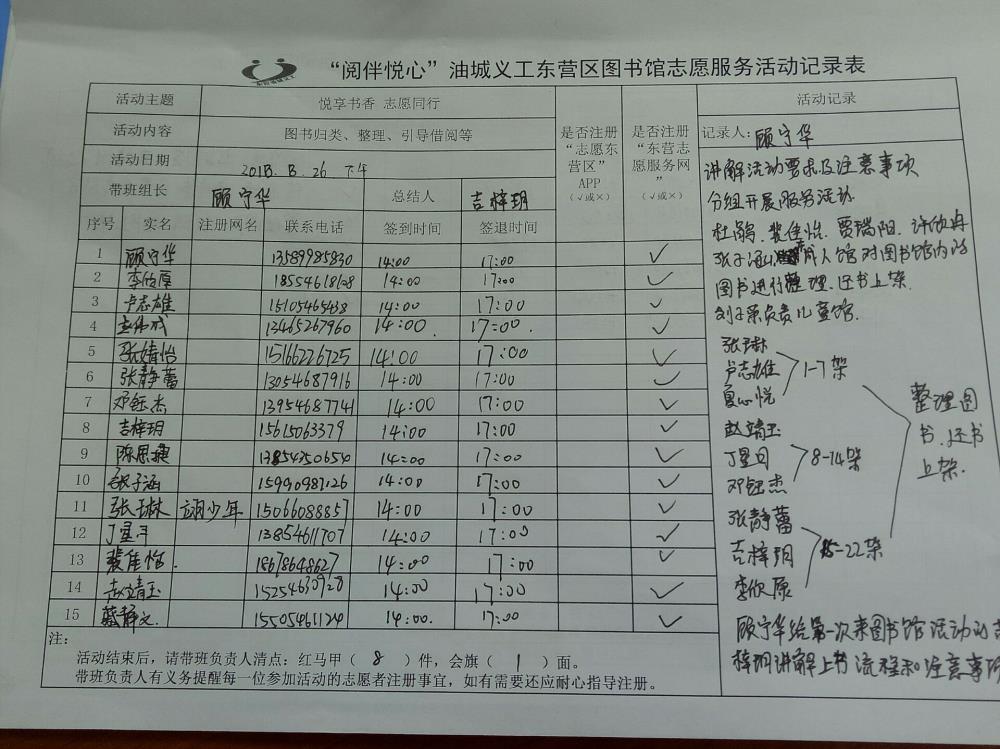 “阅伴悦心”油城义工东营区图书馆志愿服务活动记录表
活动主题 悦享书香 志愿同行
活动内容 图书归类、整理、引导借阅等
活动日期 2018. 8. 26 下午
带班组长 顾守华 总结人 吉梓玥
是否注册“志愿东营区”APP（√或×）
是否注册“东营志愿服务网”（√或×）
序号 实名 注册网名 联系电话 签到时间 签退时间
1 顾守华 13589985830 14:00 17:00 √
2 李欣原 18554618618 14:00 17:00 √
3 卢志雄 15105465468 14:00 17:00 √
4 13465267960 14:00. 17:00. √
5 张婧怡 15166226725 14:00 17:00 √
6 张静蕾 13054687916 14:00 17:00 √
7 邓钰杰 13954687741 14:00 17:00 √
8 吉梓玥 15615063379 14:00 17:00 √
9 陈思捷 13854350654 14:00 17:00 √
10 张子涵 15990987126 14:00 17:00 √
11 张琳 翊少年 15066088857 14:00 17:00 √
12 丁星 13854611707 14:00 17:00 √
13 裴佳怡. 18678648627 14:00 17:00 √
14 赵靖玉 15254630928 14:00 17:00 √
15 蔡静文. 15505461124 14:00. 17:00 √
注：
活动结束后，请带班负责人清点：红马甲（ 8 ）件，会旗（ 1 ）面。
带班负责人有义务提醒每一位参加活动的志愿者注册事宜，如有需要还应耐心指导注册。
活动记录
记录人：顾守华
讲解活动要求及注意事项
分组开展服务活动
杜鹃、裴佳怡、贾瑞阳、许欣冉
张子涵 成人馆对图书馆内的
图书进行整理、还书上架.
负责儿童馆.
张琳
卢志雄 1-7架
夏心悦
赵靖玉
丁星 8-14架
邓钰杰
张静蕾
吉梓玥 15-22架
李欣原
整理图
书、还书
上架.
顾守华给第一次来图书馆活动的吉
梓玥讲解上书流程和注意事项